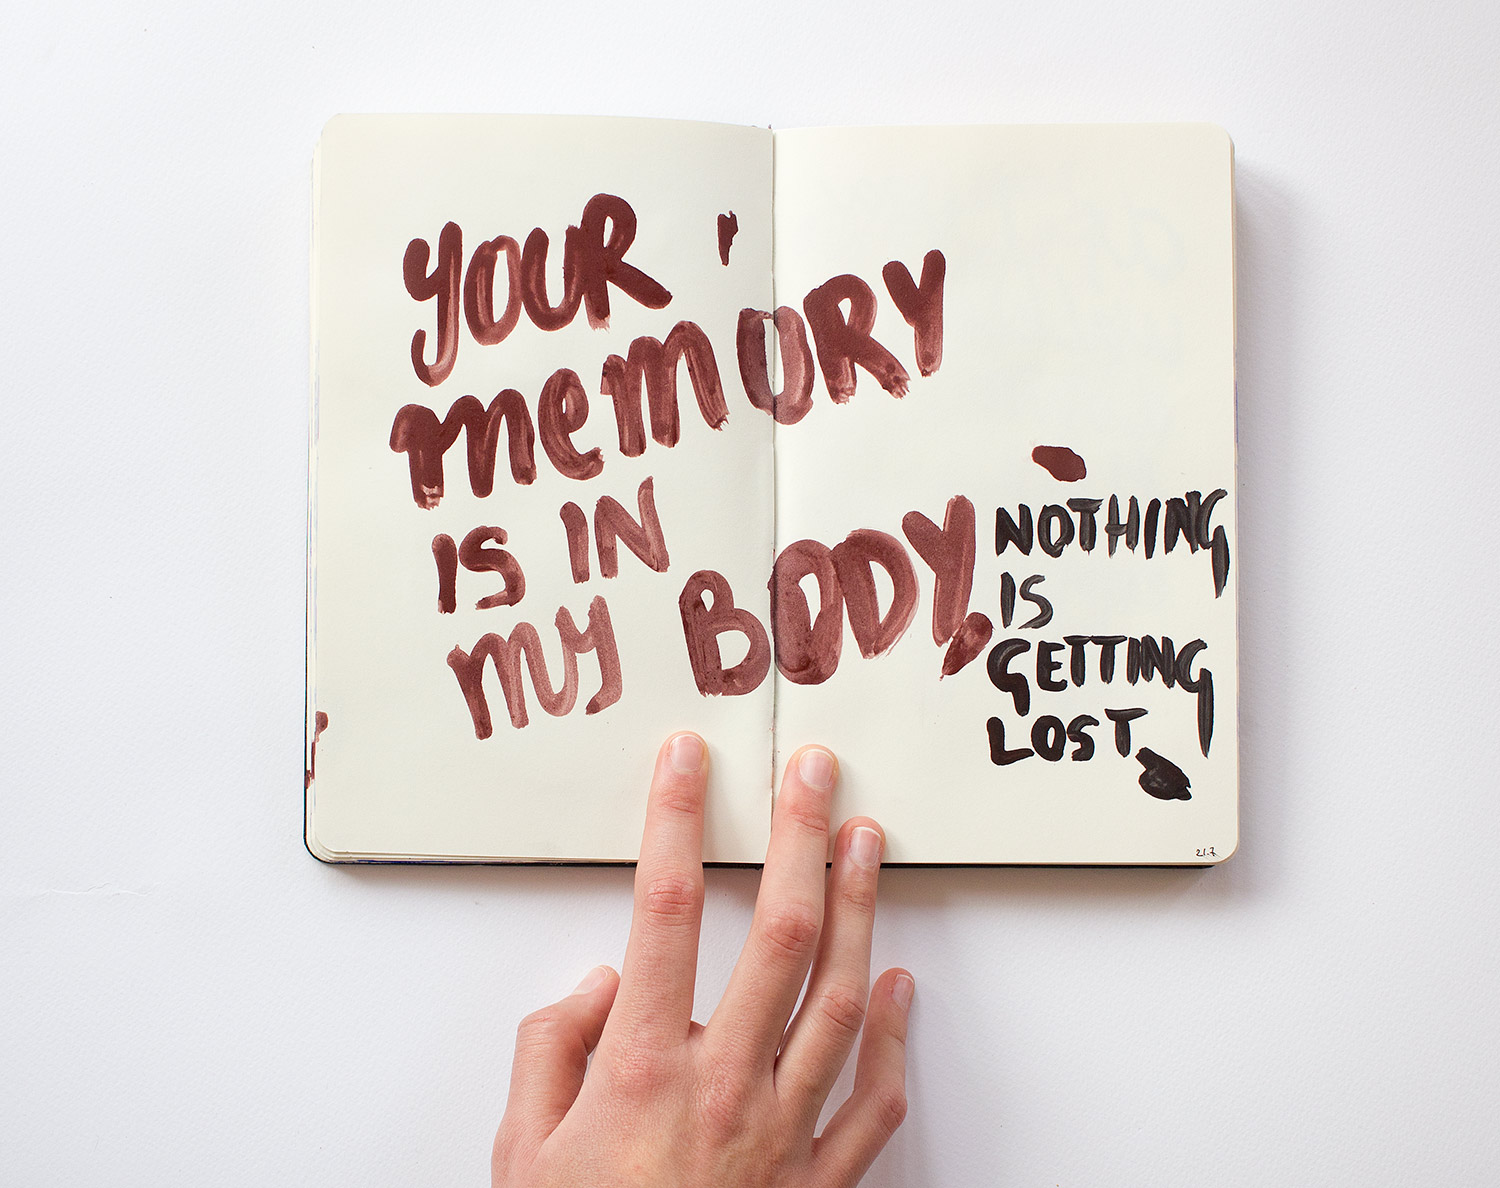 YOUR
memORY
IS IN
my BODY,
NOTHING
IS
GETTING
LOST.
21.7.